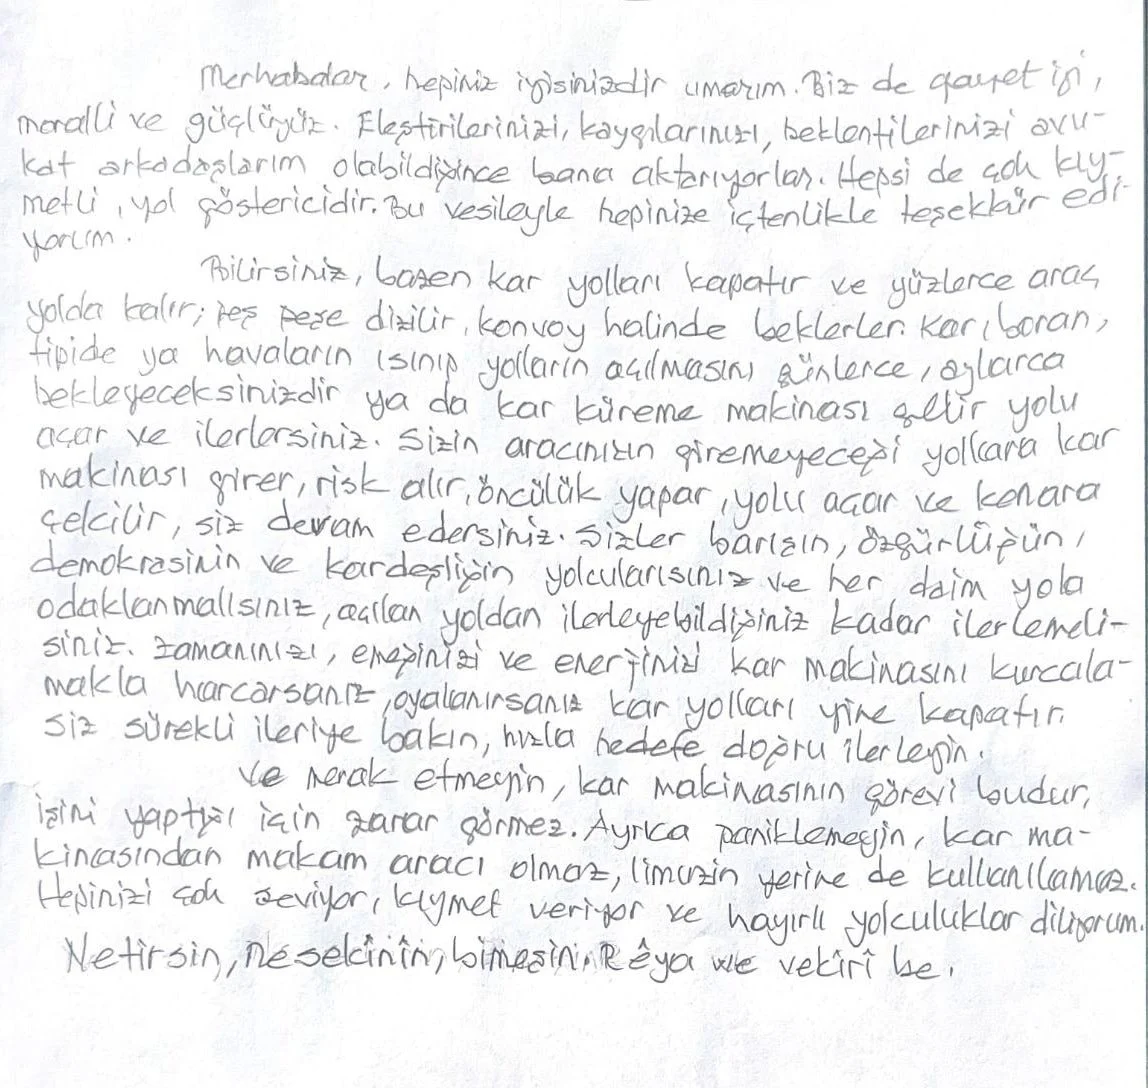 Merhabalar, hepiniz iyisinizdir umarım. Biz de gayet iyi,
moralli ve güçlüyüz. Eleştirilerinizi, kaygılarınızı, beklentilerinizi avu-
kat arkadaşlarım olabildiğince bana aktarıyorlar. Hepsi de çok kıy-
metli, yol göstericidir. Bu vesileyle hepinize içtenlikle teşekkür edi-
yorum.
Bilirsiniz, bazen kar yolları kapatır ve yüzlerce araç
yolda kalır; peş peşe dizilir, konvoy halinde beklerler. Kar, boran,
tipide ya havaların ısınıp yolların açılmasını günlerce, aylarca
bekleyeceksinizdir ya da kar küreme makinası gelir yolu
açar ve ilerlersiniz. Sizin aracınızın giremeyeceği yollara kar
makinası girer, risk alır, öncülük yapar, yolu açar ve kenara
çekilir, siz devam edersiniz. Sizler barışın, özgürlüğün,
demokrasinin ve kardeşliğin yolcularısınız ve her daim yola
odaklanmalısınız, açılan yoldan ilerleyebildiğiniz kadar ilerlemeli-
siniz. Zamanınızı, emeğinizi ve enerjinizi kar makinasını kurcala-
makla harcarsanız, oyalanırsanız kar yolları yine kapatır.
Siz sürekli ileriye bakın, hızla hedefe doğru ilerleyin.
Ve merak etmeyin, kar makinasının görevi budur,
işini yaptığı için zarar görmez. Ayrıca paniklemeyin, kar ma-
kinasından makam aracı olmaz, limuzin yerine de kullanılamaz.
Hepinizi çok seviyor, kıymet veriyor ve hayırlı yolculuklar diliyorum.
Netirsin, nesekinîn, bimeşin. Rêya we vekirî be.